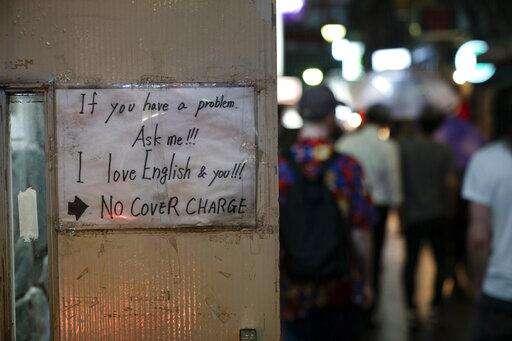 If you have a problem.
Ask me!!!
I love English & you!!!
➡ NO COVER CHARGE